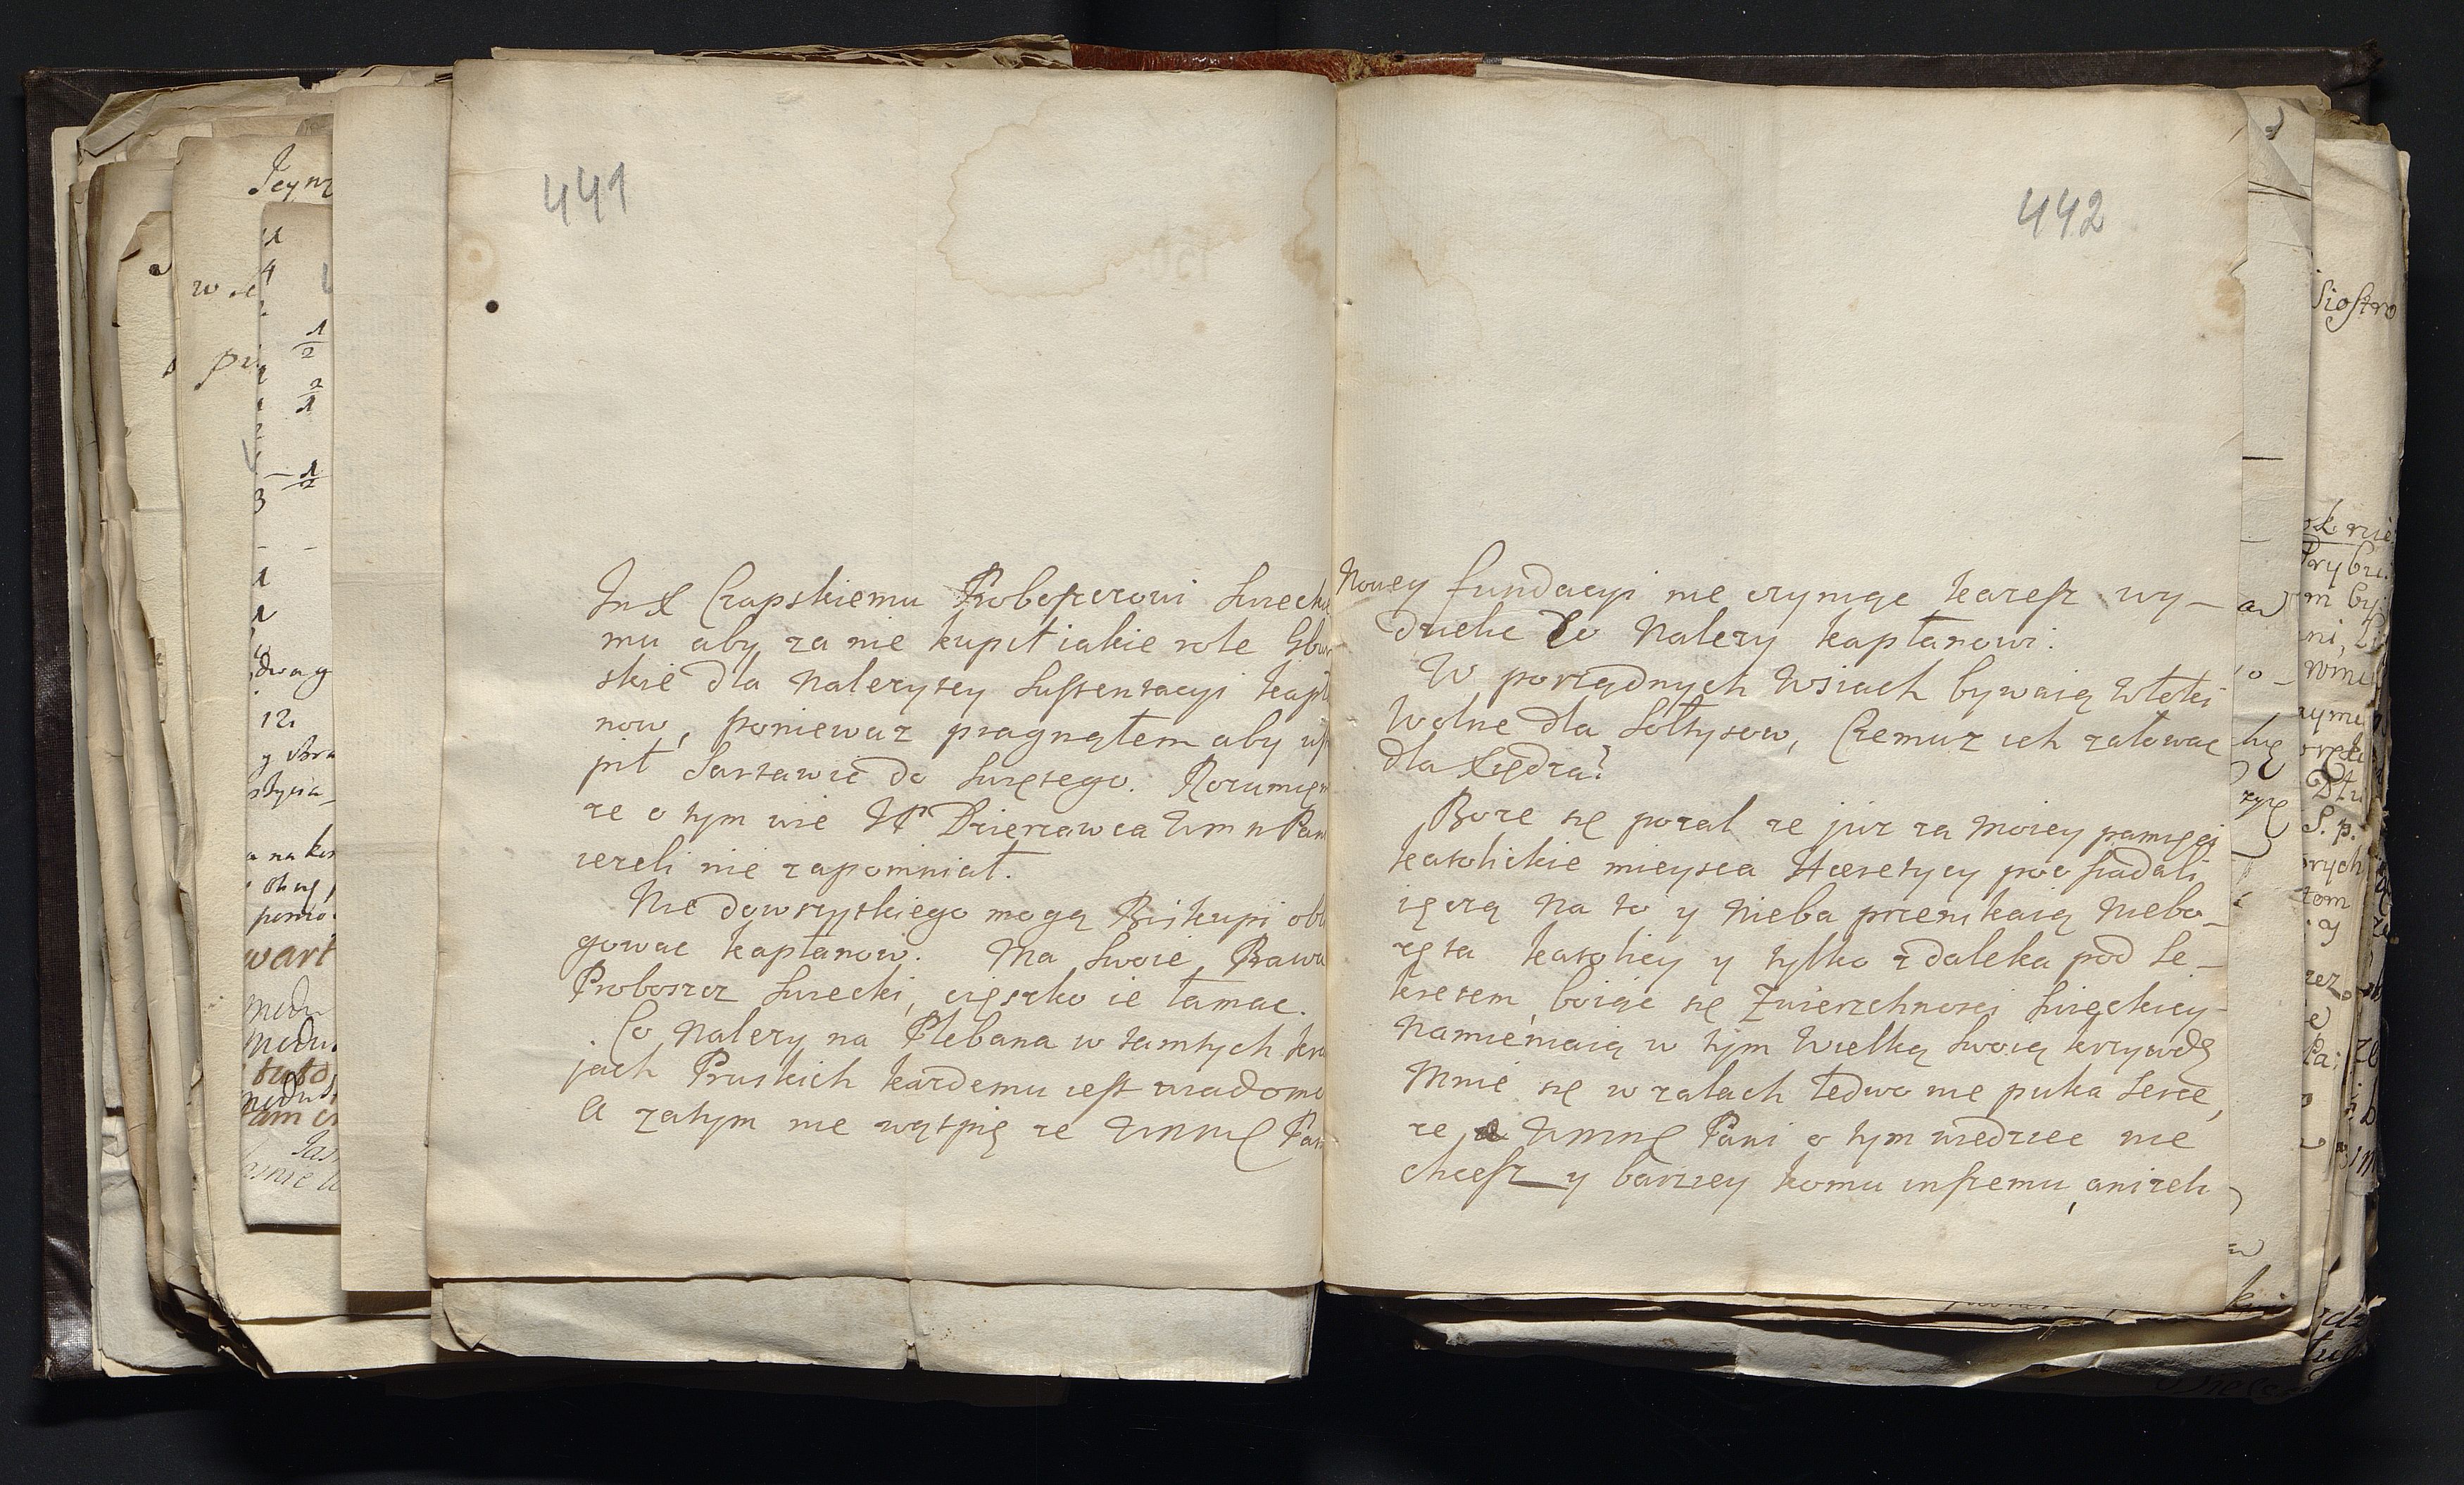 441
Jmx Czapskiemu Proboszczowi Swiecke
mu aby za nie kupił iakie role Gbur
skie dla nalezytey Sustentacyi kapła
now, poniewaz pragnąłem aby
pił do Swiętego. Rozumięm
ze o tym wie JP Dzierzawca Wm n Pan
iezeli nie zapomniał.
Nie dowszystkiego mogą Biskupi obli
gowac kapłanow. Ma Swoie Prawa
Proboszcz Swiecki, cięszko ie łamac.
Co nalezy na Plebana w tamtych kra
jach Pruskich kazdemu iest wiadomo
A zatym nie wątpię ze Wmmę Pan
442
Nowey fundacyi nie czyniąc kazesz wy-
dzielic Co Nalezy kapłanowi.
W porządnych Wsiach bywaią Włoki
Wolne dla Sołtysow, Czemuz ich załowac
dla Xiędza?
Boze się pozal ze juz za moiey pamięci
katolickie mieysca Hæretycy poosiadali
ięczą na to y Nieba przenikaią niebo-
zęta katolicy y tylko zdaleka pod Se-
kretem, boiąc się Zwierzchnosci Swieckiey
Namieniaią w tym Wielką Swoią krzywdę
Mnie się w zalach ledwo nie puka Serce,
ze Wmmę Pani o tym wiedziec nie
chcesz y barziey komu inszemu, anizeli